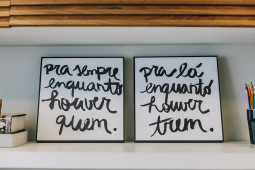 pra sempre
enquanto
houver
quem.
pra lá
enquanto
houver
trem.